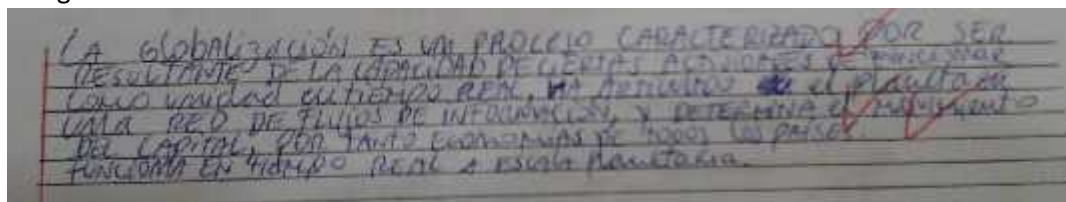 LA GLOBALIZACIÓN ES UN PROCESO CARACTERIZADO POR SER
RESULTANTE DE LA CAPACIDAD DE CIERTAS ACTIVIDADES DE FUNCIONAR
COMO unidad EN TIEMPO REAL, HA el planeta en
UNA RED DE FLUJOS DE INFORMACIÓN, Y DETERMINA el movimiento
DEL CAPITAL, POR TANTO ECONOMIAS DE TODOS LOS PAISES.
FUNCIONA EN TIEMPO REAL A ESCALA planetaria.